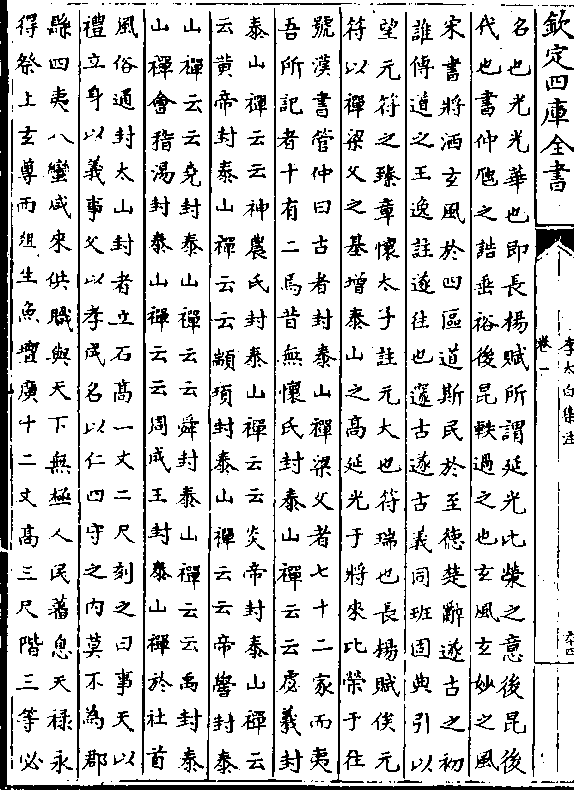 欽定四庫全書
李太白集注
卷一
名也光光華也即長楊賦所謂延光比榮之意後昆後
代也書仲虺之誥垂裕後昆軼過之也玄風玄妙之風
宋書將洒玄風於四區道斯民於至德楚辭遂古之初
誰傳道之王逸註遂往也邃古遂古義同班固典引以
望元符之臻章懷太子註元大也符瑞也長楊賦俟元
符以禪梁父之基增泰山之高延光于將來比榮于往
號漢書管仲曰古者封泰山禪梁父者七十二家而夷
吾所記者十有二焉昔無懷氏封泰山禪云云虙羲封
泰山禪云云神農氏封泰山禪云云炎帝封泰山禪云
云黄帝封泰山禪云云顓頊封泰山禪云云帝嚳封泰
山禪云云堯封泰山禪云云舜封泰山禪云云禹封泰
山禪會稽湯封泰山禪云云周成王封泰山禪於社首
風俗通封太山封者立石高一丈二尺刻之曰事天以
禮立身以義事父以孝成名以仁四守之内莫不為郡
縣四夷八蠻咸來供職與天下無極人民蕃息天禄永
得祭上玄尊而俎生魚豐廣十二丈高三尺階三等必